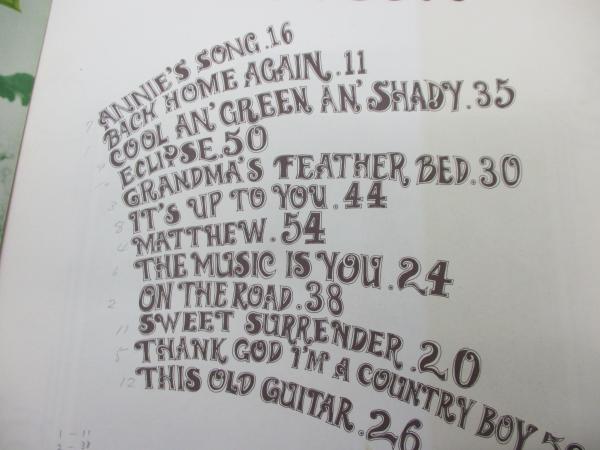 ANNIE'S SONG.16
BACK HOME AGAIN.11
COOL AN' GREEN AN' SHADY.35
ECLIPSE.50
GRANDMA'S FEATHER BED.30
3
IT'S UP TO YOU.44
8
MATTHEW.54
THE MUSIC IS YOU.24
ON THE ROAD.38
2
SWEET SURRENDER.20
11
THANK GOD I'M A COUNTRY BOY
5
THIS OLD GUITAR.26
12
1 - 11
2 - 38